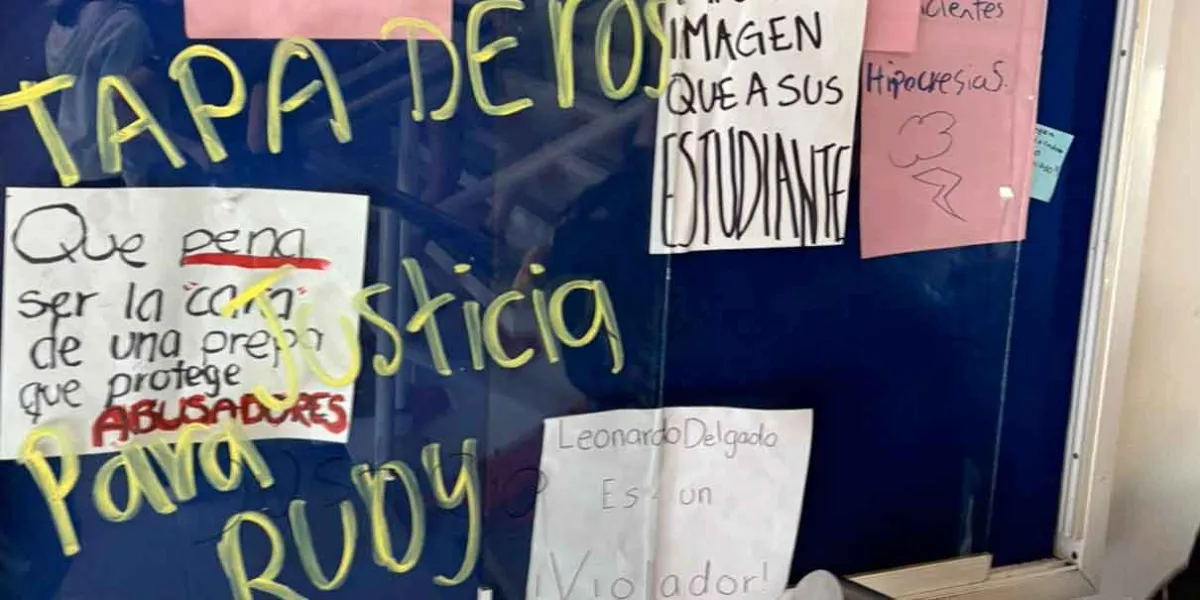 TAPADEROS
IMAGEN
QUE A SUS
ESTUDIANTE
Hipocresias.
Que pena
ser la "cara"
de una prepa
que protege
ABUSADORES
Justicia
Para
RUDY
Leonardo Delgado
Es un
¡Violador!